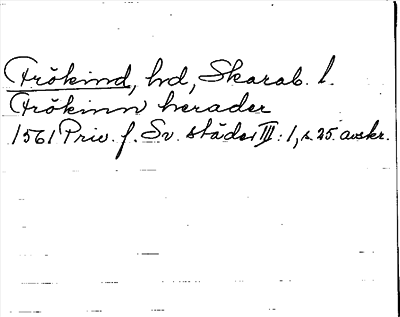 Frökind, hd, Skarab. l.
Frökinn herader
1561 Priv. f. Sv. städer III: 1, s. 25. avskr.